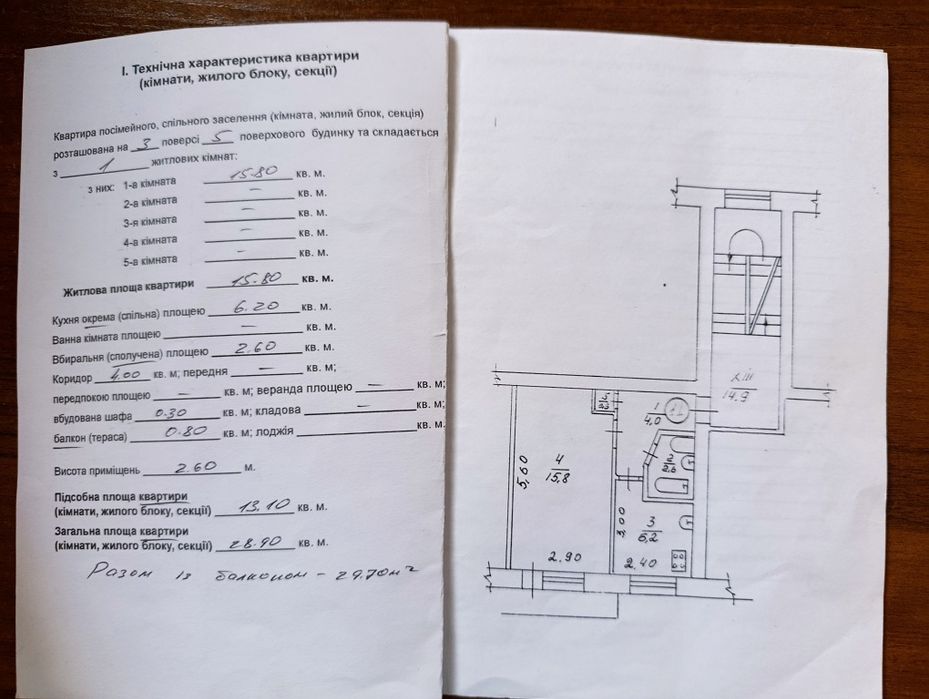 I. Технічна характеристика квартири
(кімнати, жилого блоку, секції)
Квартира посімейного, спільного заселення (кімната, жилий блок, секція)
розташована на 3 поверсі 5 поверхового будинку та складається
з 1 житлових кімнат:
з них: 1-а кімната 15.80 кв. м.
2-а кімната – кв. м.
3-я кімната – кв. м.
4-а кімната – кв. м.
5-а кімната – кв. м.
Житлова площа квартири 15.80 кв. м.
Кухня окрема (спільна) площею 6.20 кв. м.
Ванна кімната площею – кв. м.
Вбиральня (сполучена) площею 2.60 кв. м.
Коридор 4.00 кв. м; передня – кв. м;
передпокою площею – кв. м; веранда площею – кв. м;
вбудована шафа 0.30 кв. м; кладова – кв. м;
балкон (тераса) 0.80 кв. м; лоджія кв. м.
Висота приміщень 2.60 м.
Підсобна площа квартири
(кімнати, жилого блоку, секції) 13.10 кв. м.
Загальна площа квартири
(кімнати, жилого блоку, секції) 28.90 кв. м.
Разом із балконом – 29.70 м²
14.9
1
4,0
11
2
2.6
4
15,8
5,60
2.90
3
6,2
3,00
2.40